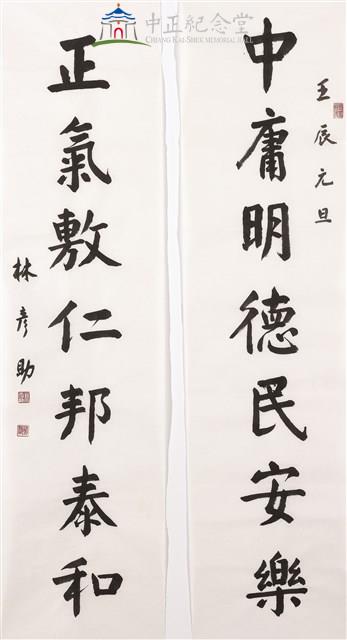 中正紀念堂
CHIANG KAI-SHEK MEMORIAL HALL
壬辰元旦
中庸明德民安樂
正氣敷仁邦泰和
林彥助